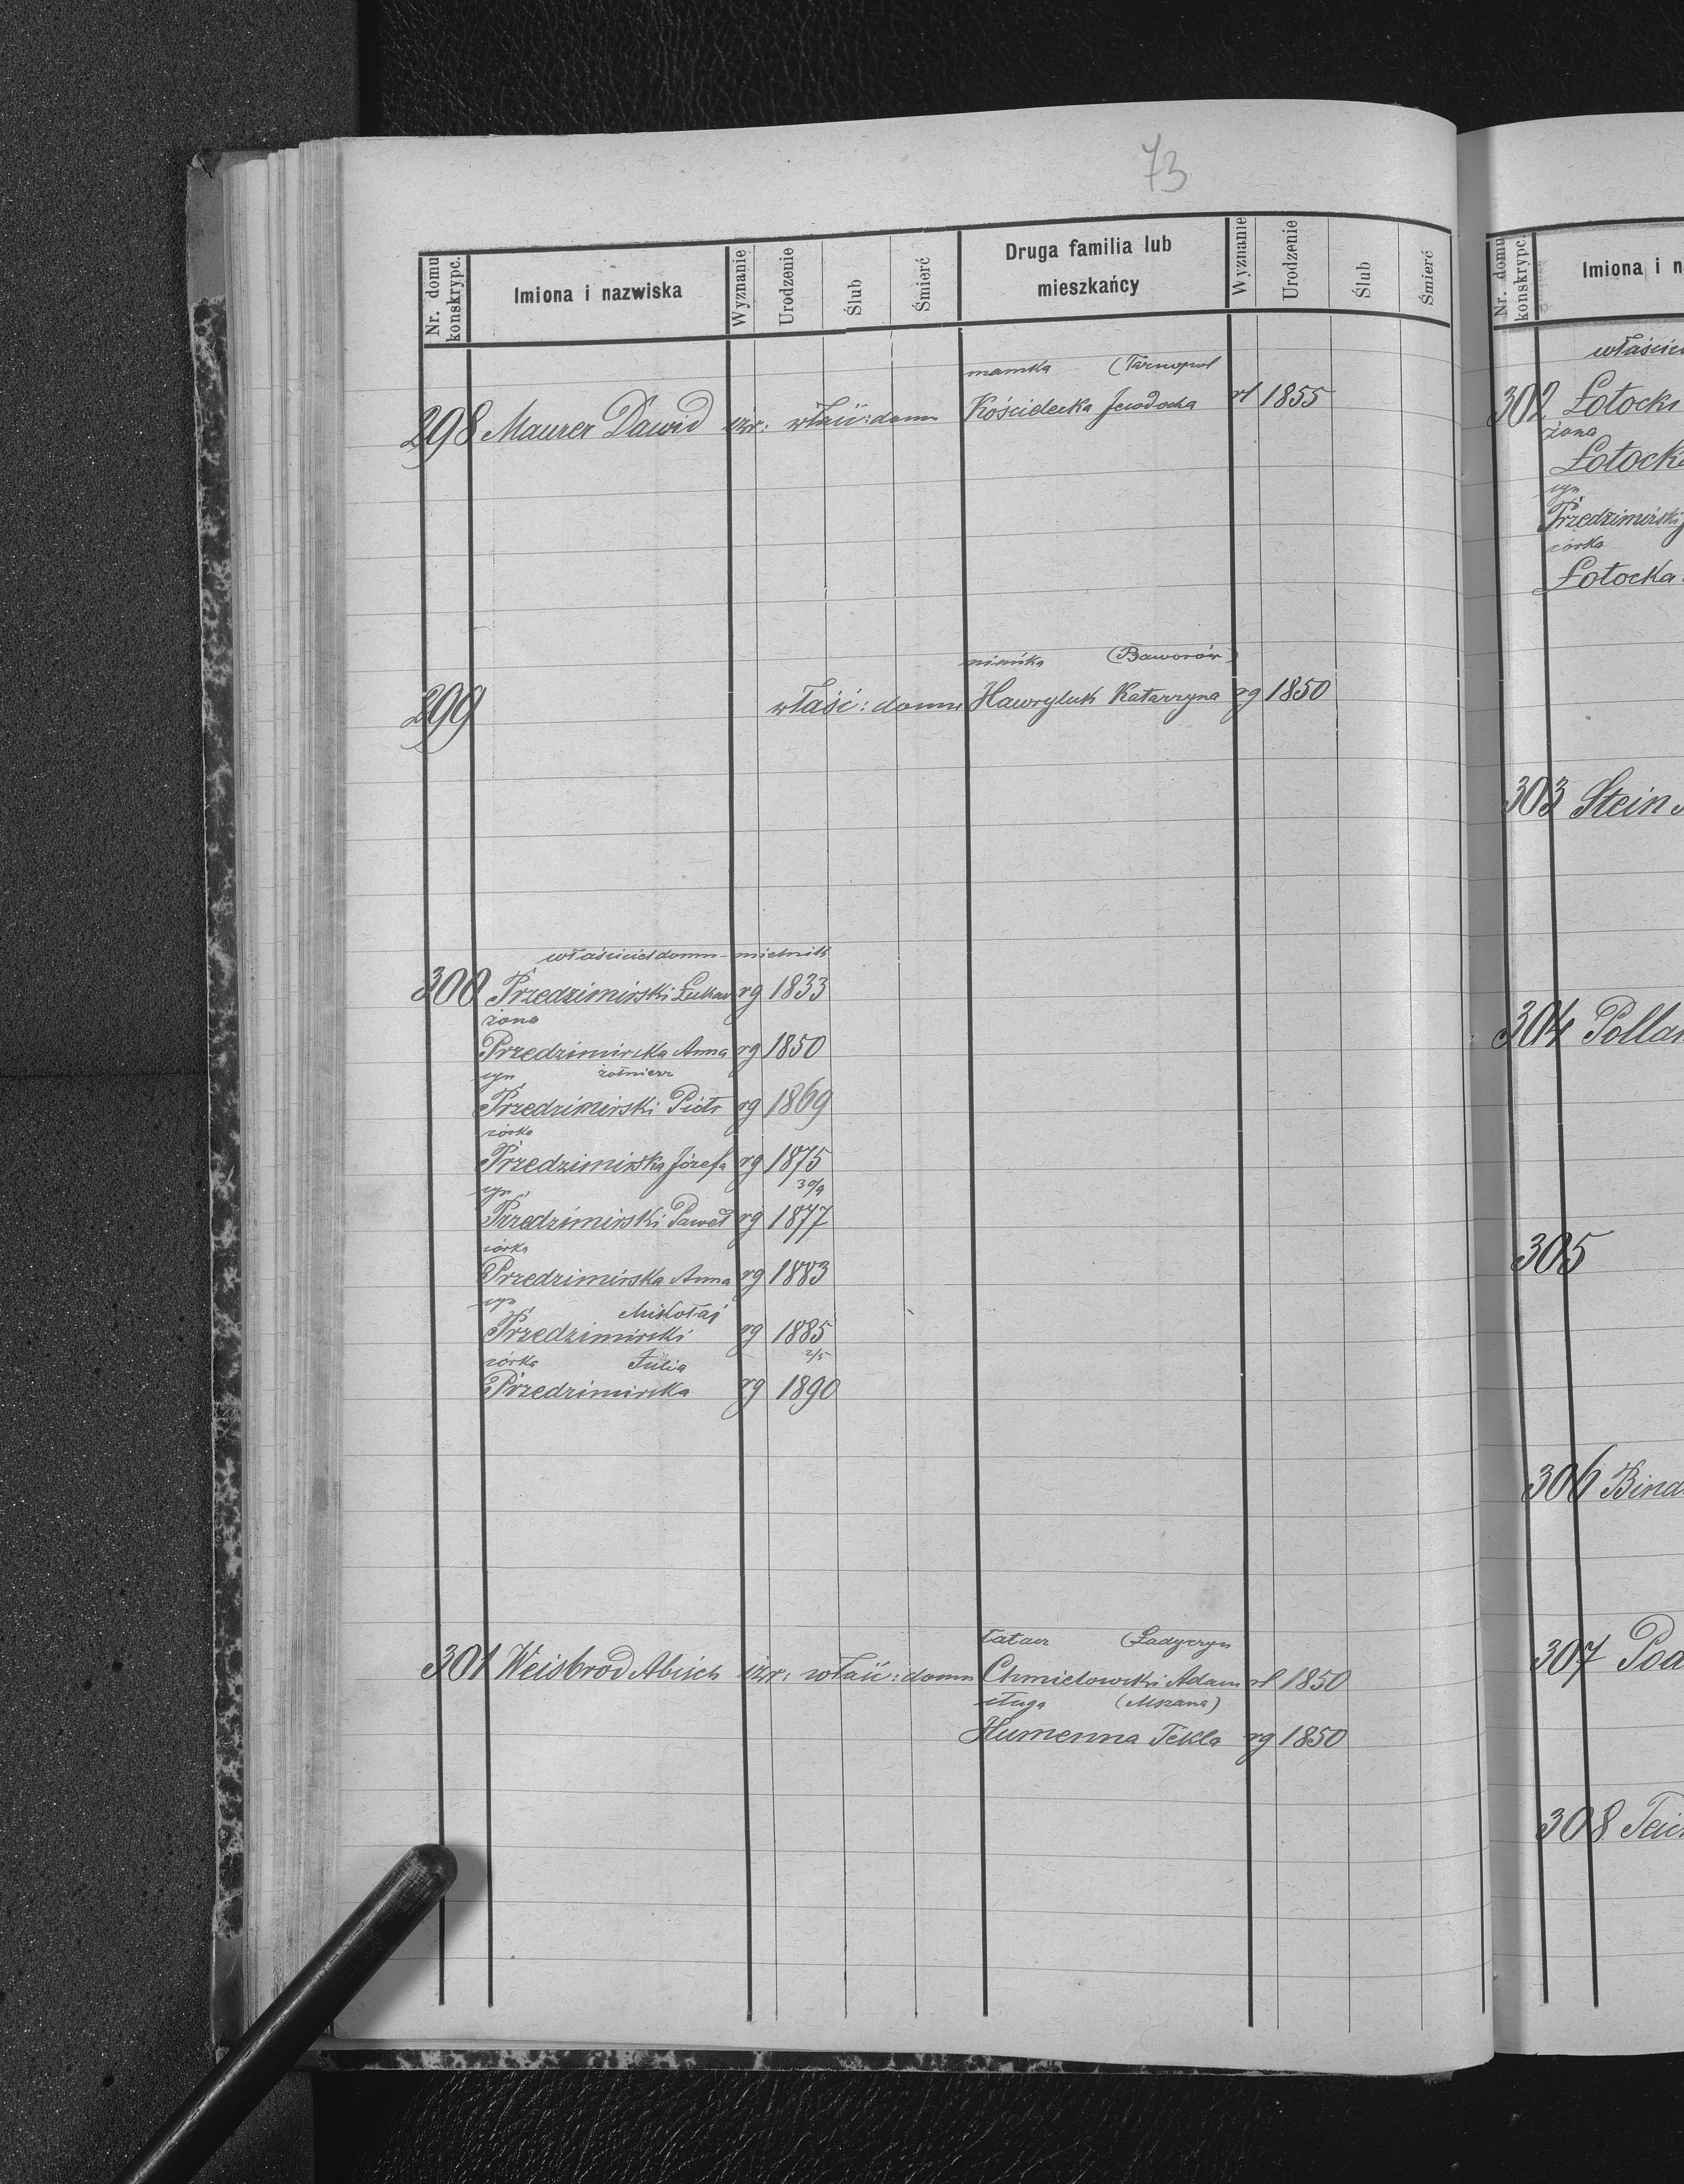 73
Nr. domu konskrypc.
Imiona i nazwiska
Wyznanie
Urodzenie
Ślub
Śmierć
Druga familia lub mieszkańcy
Wyznanie
Urodzenie
Ślub
Śmierć
mamka (Tarnopol
298 Maurer Dawid izr: właść: domu Kościelecka Jewdocha rł 1855
niańka (Baworów)
299 właść: domu Hawryluk Katarzyna rg 1850
właściciel domu - mielnik
300 Przedzimirski Łukasz rg 1833
żona
Przedzimirska Anna rg 1850
syn żołnierz
Przedzimirski Piotr rg 1869
córka
Przedzimirska Józefa rg 1875
syn 30/9
Przedzimirski Paweł rg 1877
córka
Przedzimirska Anna rg 1883
syn Mikołaj
Przedzimirski rg 1885
córka Julia 2/5
Przedzimirska rg 1890
(Ładyczyn
301 Weisbrod Abisch izr: właść: domu Chmielowski Adam rł 1850
sługa (Mszana)
Humenna Tekla rg 1850
Nr. domu konskrypc.
Imiona i n
właścic
302 Łotocki
żona
Łotocka
syn
Przedzimirski
córka
Łotocka
303 Stein
304 Pollak
305
306 Bind
307 Pod
308 Teic